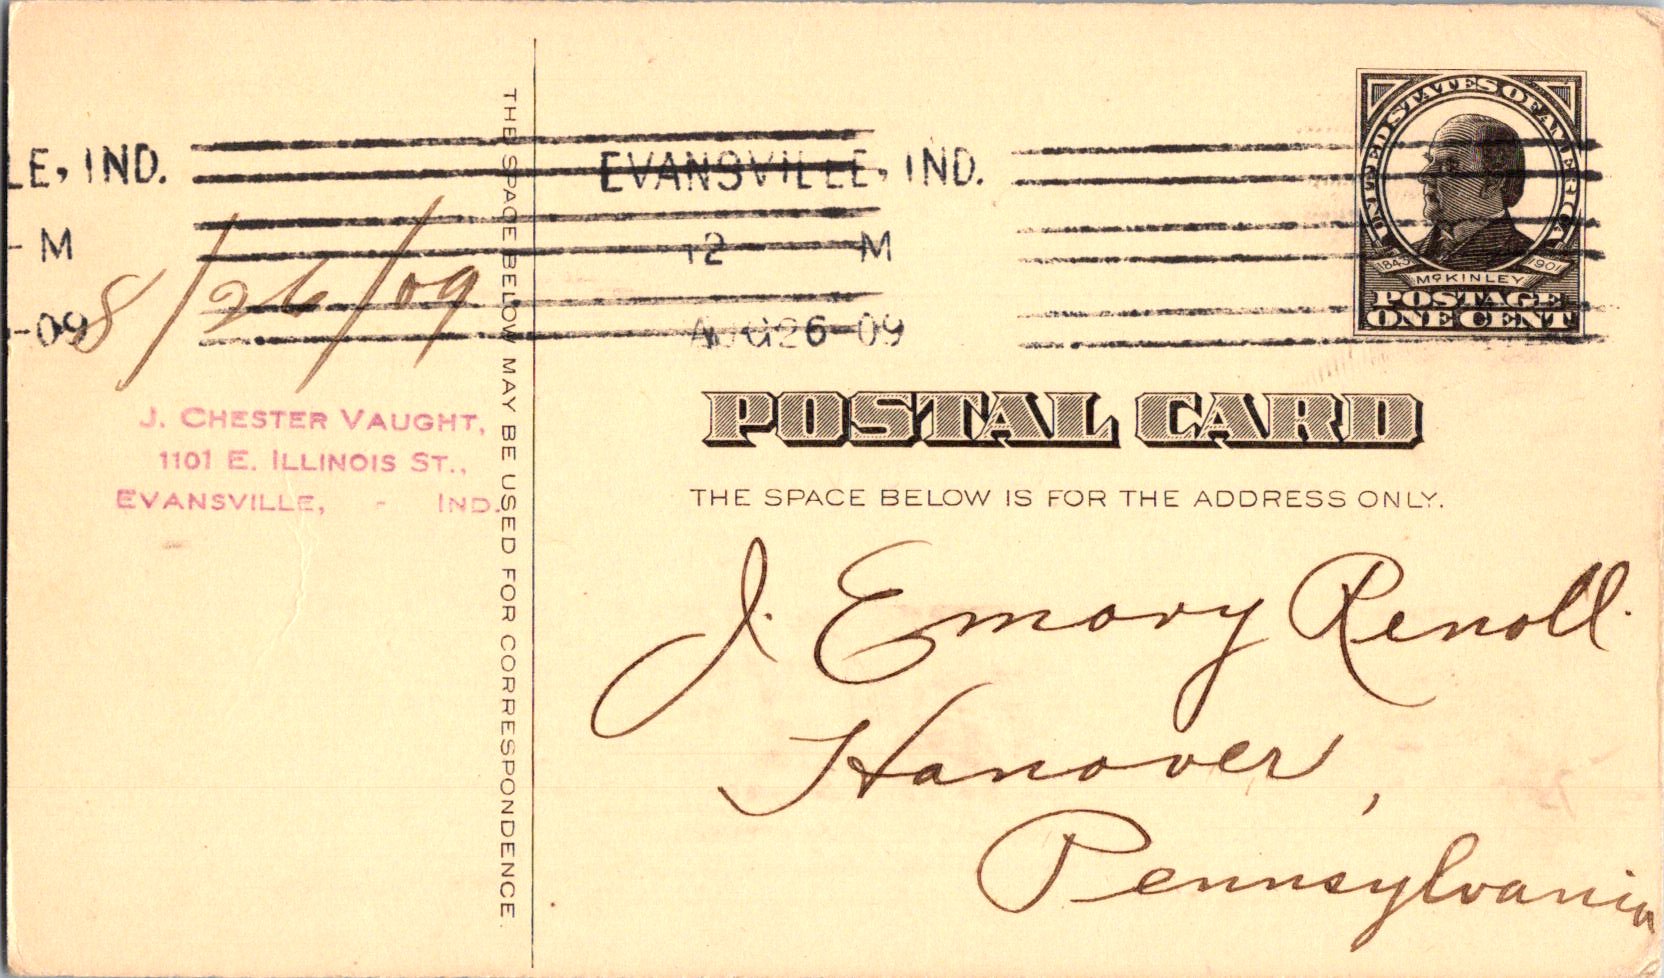 LE, IND.
M
-09
8/26/09
J. CHESTER VAUGHT,
1101 E. ILLINOIS ST.,
EVANSVILLE, - IND.
THE SPACE BELOW MAY BE USED FOR CORRESPONDENCE.
EVANSVILLE, IND.
12 M
AUG 26-09
UNITED STATES OF AMERICA
1843 1901
McKINLEY
POSTAGE
ONE CENT
POSTAL CARD
THE SPACE BELOW IS FOR THE ADDRESS ONLY.
J. Emory Renoll.
Hanover,
Pennsylvania